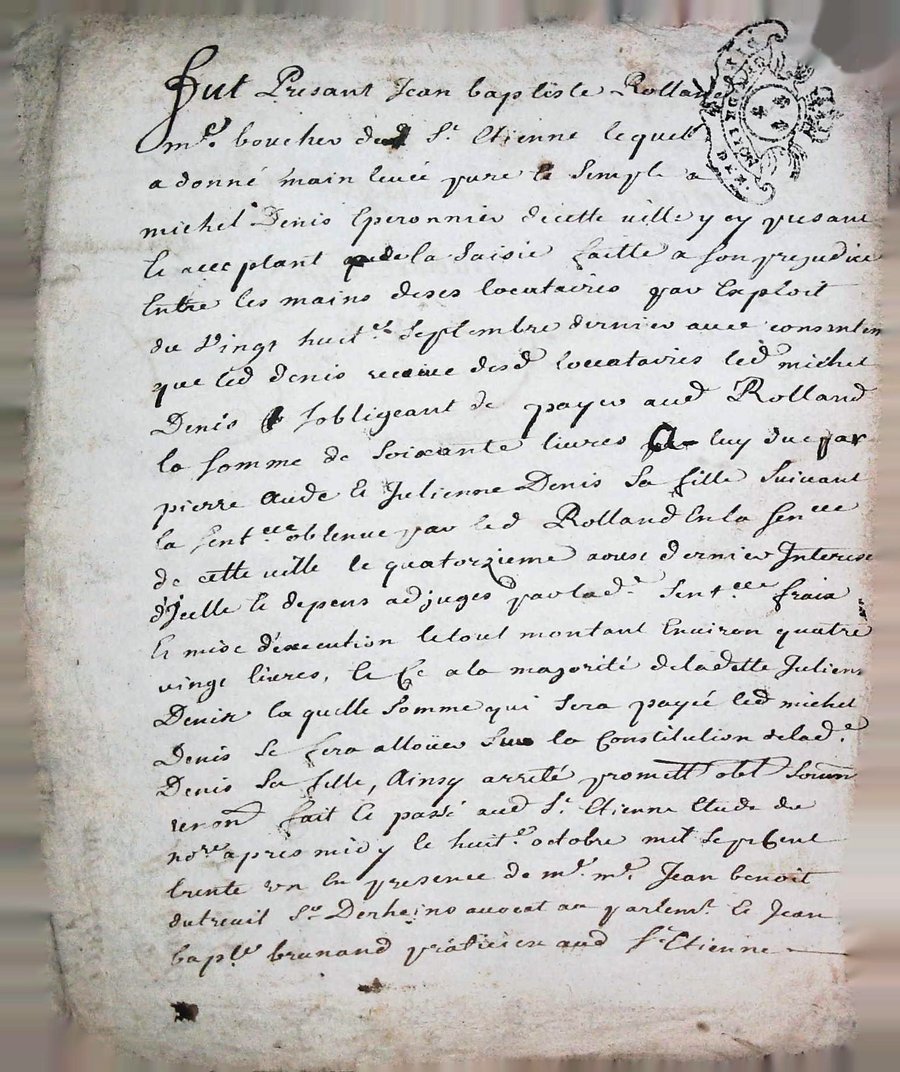 fut Presant Jean baptiste Rolland
m.e boucher de St Etienne lequel
a donné main levée pure et simple a
michel Denis Eperonnier de cette ville y cy presant
et acceptant de la Saisie faitte a son prejudice
Entre les mains de ses locataires par Exploit
du vingt huit.e Septembre dernier avec consentem
que led denis recoive desd locataires led michel
Denis s'obligeant de payer aud Rolland
la somme de Soixante livres a luy due par
pierre Aude et Julienne Denis sa fille suivant
la sent.ce obtenue par led Rolland En la sen.cee
de cette ville le quatorzieme aoust dernier Interest
d'Icelle et depens adjuges par lad.e Sent.cee fraix
et mise d'execution le tout montant Environ quatre
vingt livres, et Ce a la majorité de ladette Julienne
Denis laquelle Somme qui sera payée led michel
Denis se fera allouer Sur la Constitution de lad.e
Denis Sa fille, Ainsy arreté promett obl soum
renon fait et passé aud St Etienne Etude du
no.re apres midy le huit.e octobre mil sept Cent
trente un En presence de m.e m.e Jean benoit
dutreuil S.r Derheins avocat au parlem.t et Jean
bap.te brunand praticien aud St Etienne